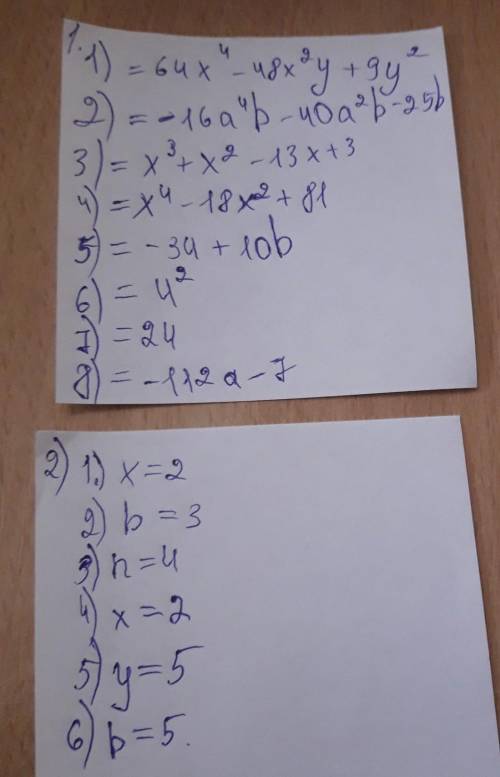 1.
1) = 64x⁴ - 48x²y + 9y²
2) = -16a⁴b - 40a²b - 25b
3) = x³ + x² - 13x + 3
4) = x⁴ - 18x² + 81
5) = -34 + 10b
6) = 4²
7) = 24
8) = -112a - 7
2) 1.) x = 2
2) b = 3
3) n = 4
4) x = 2
5) y = 5
6) b = 5.